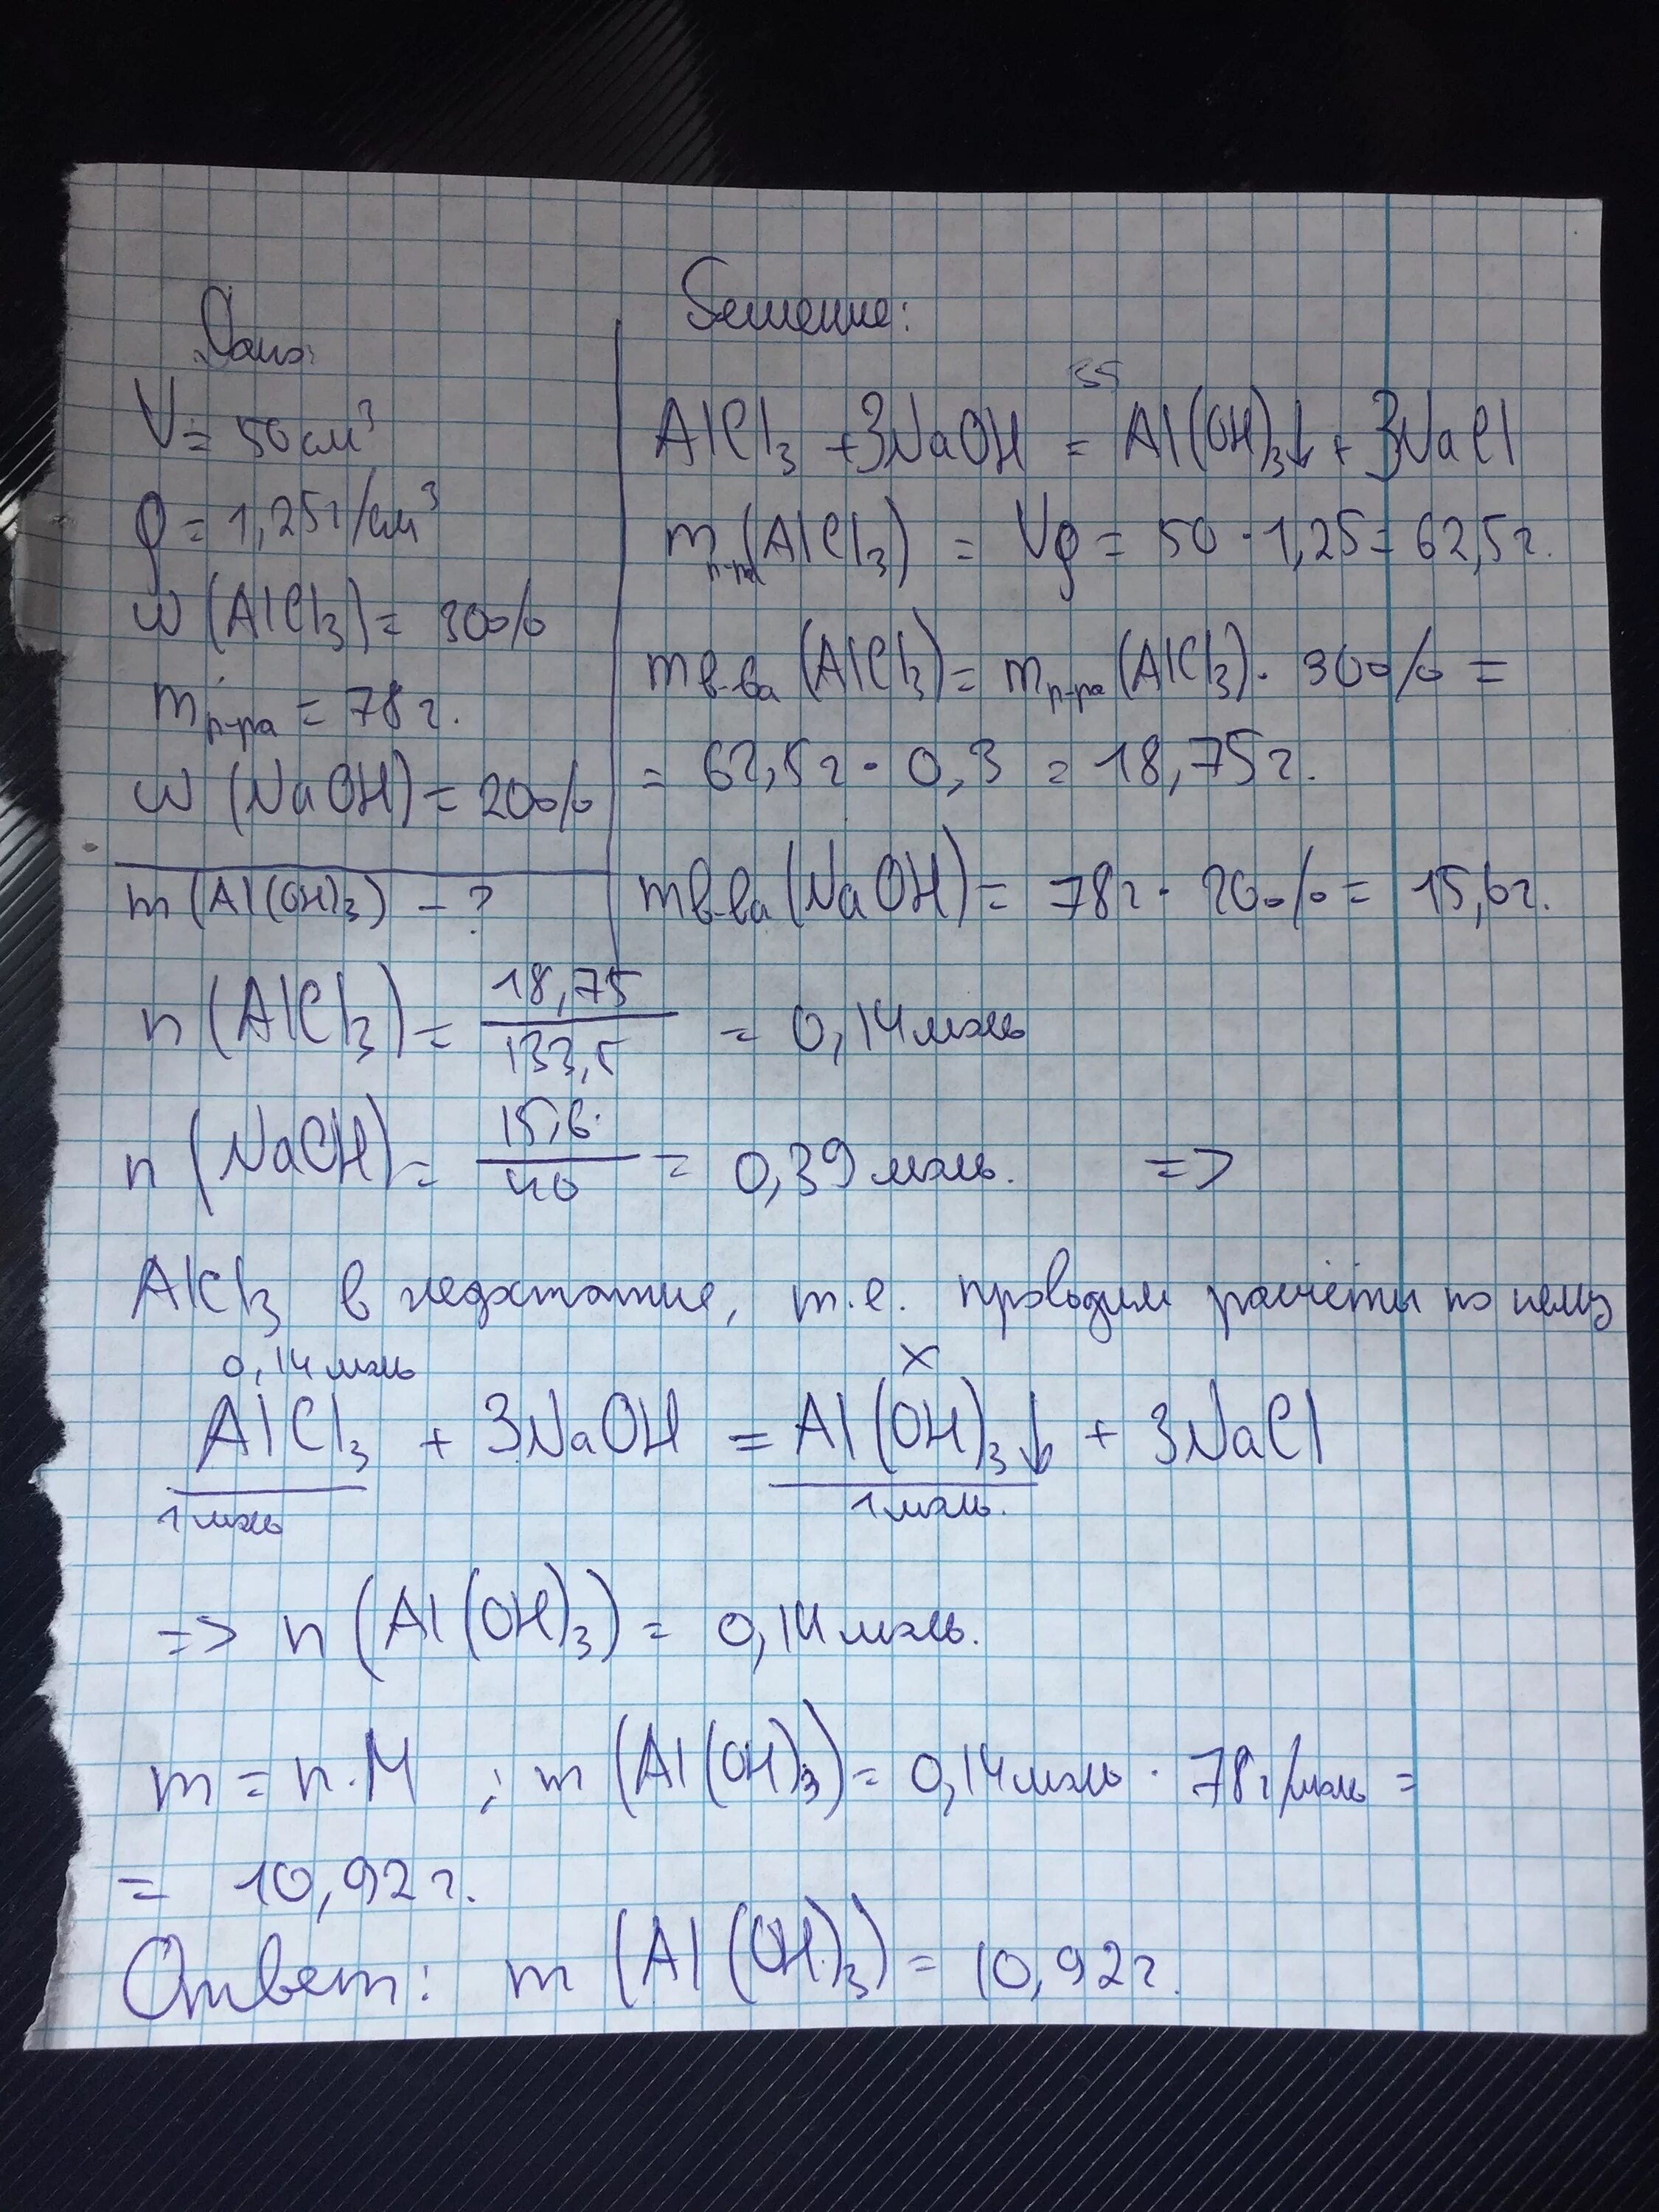 Дано:
V = 50 см³
ρ = 1,25 г/см³
w (AlCl₃) = 30%
m р-ра = 78 г.
w (NaOH) = 20%
m (Al(OH)₃) - ?
Решение:
AlCl₃ + 3NaOH = Al(OH)₃↓ + 3NaCl
m р-ра (AlCl₃) = Vρ = 50 · 1,25 = 62,5 г.
m в-ва (AlCl₃) = m р-ра (AlCl₃) · 30% =
= 62,5 г · 0,3 = 18,75 г.
m в-ва (NaOH) = 78 г · 20% = 15,6 г.
n (AlCl₃) = 18,75 / 133,5 = 0,14 моль
n (NaOH) = 15,6 / 40 = 0,39 моль. =>
AlCl₃ в недостатке, т.е. проводим расчёты по нему
0,14 моль x
AlCl₃ + 3NaOH = Al(OH)₃↓ + 3NaCl
1 моль 1 моль.
=> n (Al(OH)₃) = 0,14 моль.
m = n · M ; m (Al(OH)₃) = 0,14 моль · 78 г/моль =
= 10,92 г.
Ответ: m (Al(OH)₃) = 10,92 г.